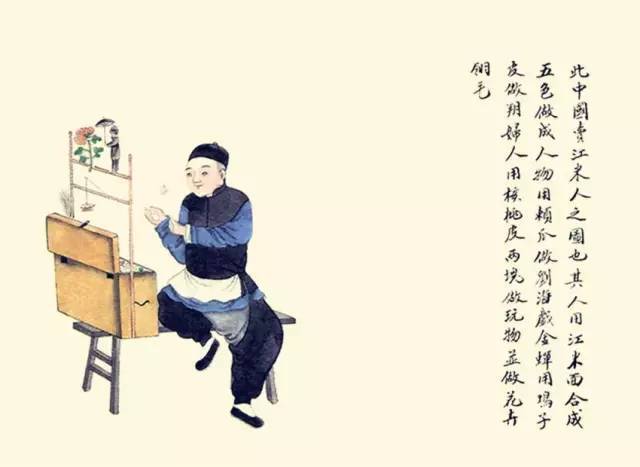 此中國賣江米人之圖也其人用江米面合成
五色做成人物用賴瓜做劉海戲金蟬用子
皮做婦人用核桃皮兩塊做玩物並做花卉
翎毛